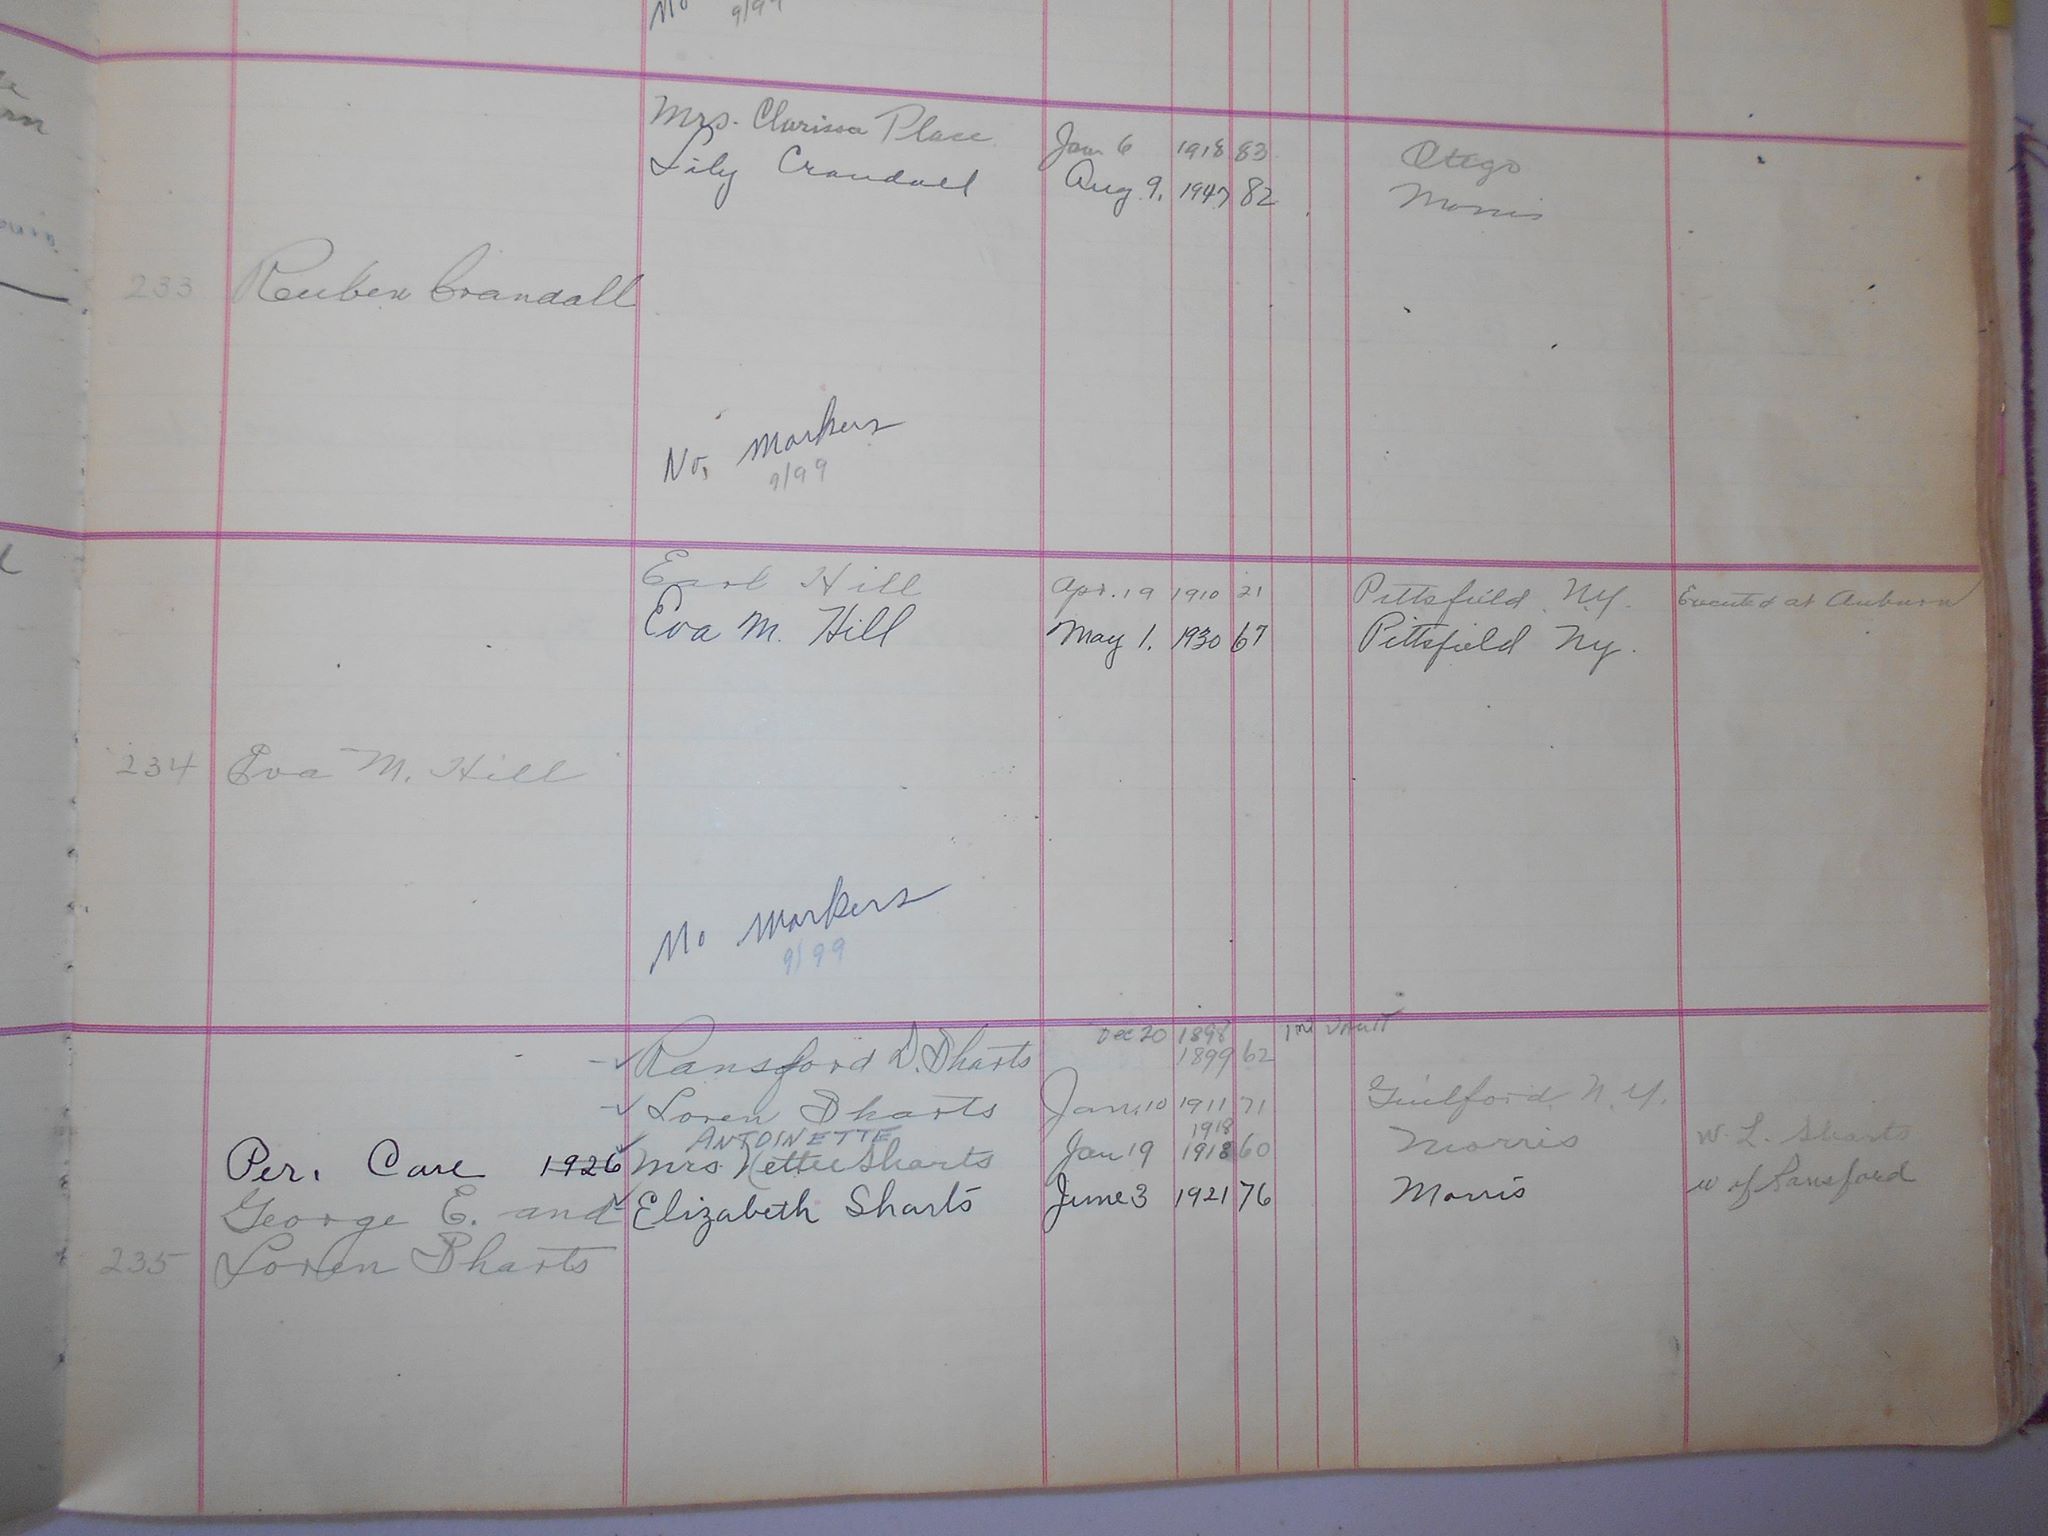 No 9/99
Mrs. Clarissa Place Jan 6 1918 83 Otego
Lily Crandall Aug 9, 1947 82 Morris
233 Reuben Crandall
No, Markers
9/99
Earl Hill Apr. 19 1910 21 Pittsfield N.Y. Executed at Auburn
Eva M. Hill May 1. 1930 67 Pittsfield Ny.
234 Eva M. Hill
No Markers
9/99
Dec 20 1898 Vault
Ransford D. Sharts 1899 62
Loren Sharts Jan. 10 1911 71 Guilford N.Y.
ANTOINETTE 1918
Per. Care 1926 Mrs. Nettie Sharts Jan 19 1918 60 Morris W. L. Sharts
George E. and Elizabeth Sharts June 3 1921 76 Morris w of Ransford
235 Loren Sharts